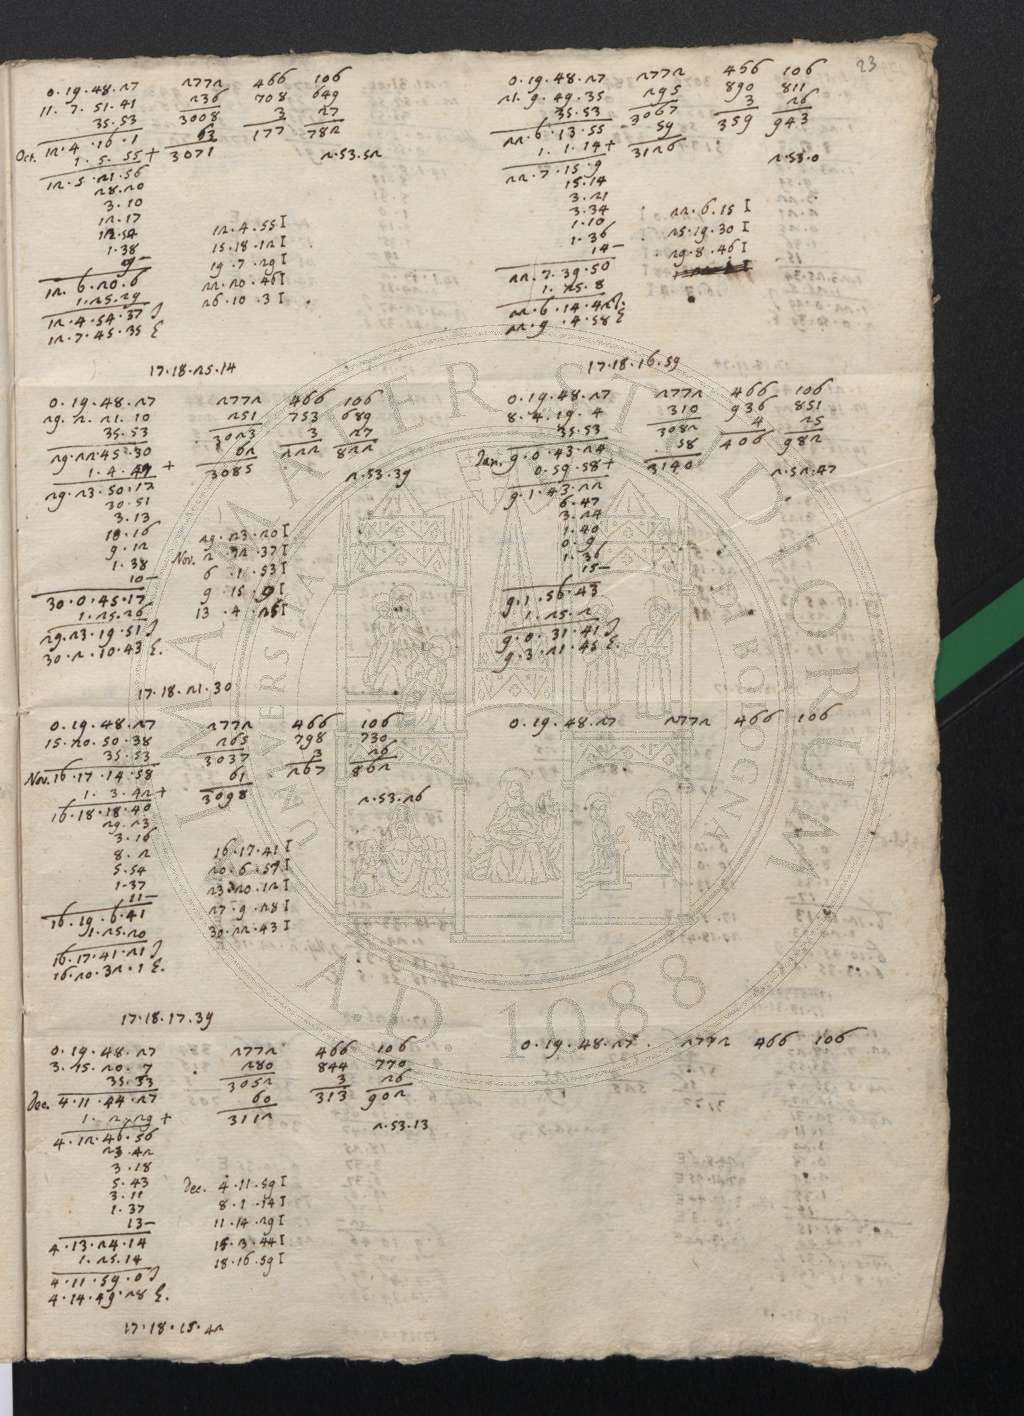 23
0.19.48.27 2772 466 106
11.7.51.41 236 708 649
35.53 3008 3 27
Oct. 12.4.16.1 63 177 782
1.5.55+ 3071
12.5.21.56 2.53.52
28.20
3.10
12.17
12.54 12.4.55 I
1.38 15.18.12 I
9– 19.7.29 I
12.6.20.6 22.20.46 I
1.25.29 26.10.3 I
12.4.54.37 I
12.7.45.35 E
17.18.25.14
0.19.48.27 2772 466 106
29.2.21.10 251 753 689
35.53 3023 3 27
29.22.45.30 62 222 822
1.4.49+ 3085
29.23.50.17 2.53.39
30.51
3.13
18.16 29.23.20 I
9.12 Nov. 2.12.37 I
1.38 6.1.53 I
10– 9.15.9 I
30.0.45.17 13.4.25 I
1.25.26
29.23.19.51 I
30.2.10.43 E.
17.18.21.30
0.19.48.27 2772 466 106
15.20.50.38 265 798 730
35.53 3037 3 26
Nov. 16.17.14.58 61 267 862
1.3.42+ 3098
16.18.18.40 2.53.26
29.23
3.16
8.2 16.17.41 I
5.54 20.6.59 I
1.37 23.20.12 I
11– 27.9.28 I
16.19.6.41 30.22.43 I
1.25.20
16.17.41.21 I
16.20.32.1 E.
17.18.17.39
0.19.48.27 2772 466 106
3.15.20.7 280 844 770
35.53 3052 3 26
Dec. 4.11.44.27 60 313 902
1.2.29+ 3112
4.12.46.56 2.53.13
23.42
3.18
5.43 Dec. 4.11.59 I
3.11 8.1.14 I
1.37 11.14.29 I
13– 15.3.44 I
4.13.24.14 18.16.59 I
1.25.14
4.11.59.0 I
4.14.49.28 E.
17.18.15.42
0.19.48.27 2772 466 106
21.9.49.35 295 890 811
35.53 3067 3 26
22.6.13.55 59 359 943
1.1.14+ 3126
22.7.15.9 2.53.0
15.14
3.21
3.34 22.6.15 I
1.10 25.19.30 I
1.36 29.8.46 I
14–
22.7.39.50
1.25.8
22.6.14.42 I.
22.9.4.58 E
17.18.16.59
0.19.48.27 2772 466 106
8.4.19.4 310 936 851
35.53 3082 4 25
Jan. 9.0.43.24 58 406 982
0.59.58+ 3140
9.1.43.22 2.52.47
6.47
3.24
1.40
0.9
1.36
15–
9.1.56.43
1.25.2
9.0.31.41 I
9.3.21.45 E.
0.19.48.27 2772 466 106
0.19.48.27 2772 466 106
ALMA MATER STUDIORUM
UNIVERSITAS BONONIENSIS
A.D. 1088